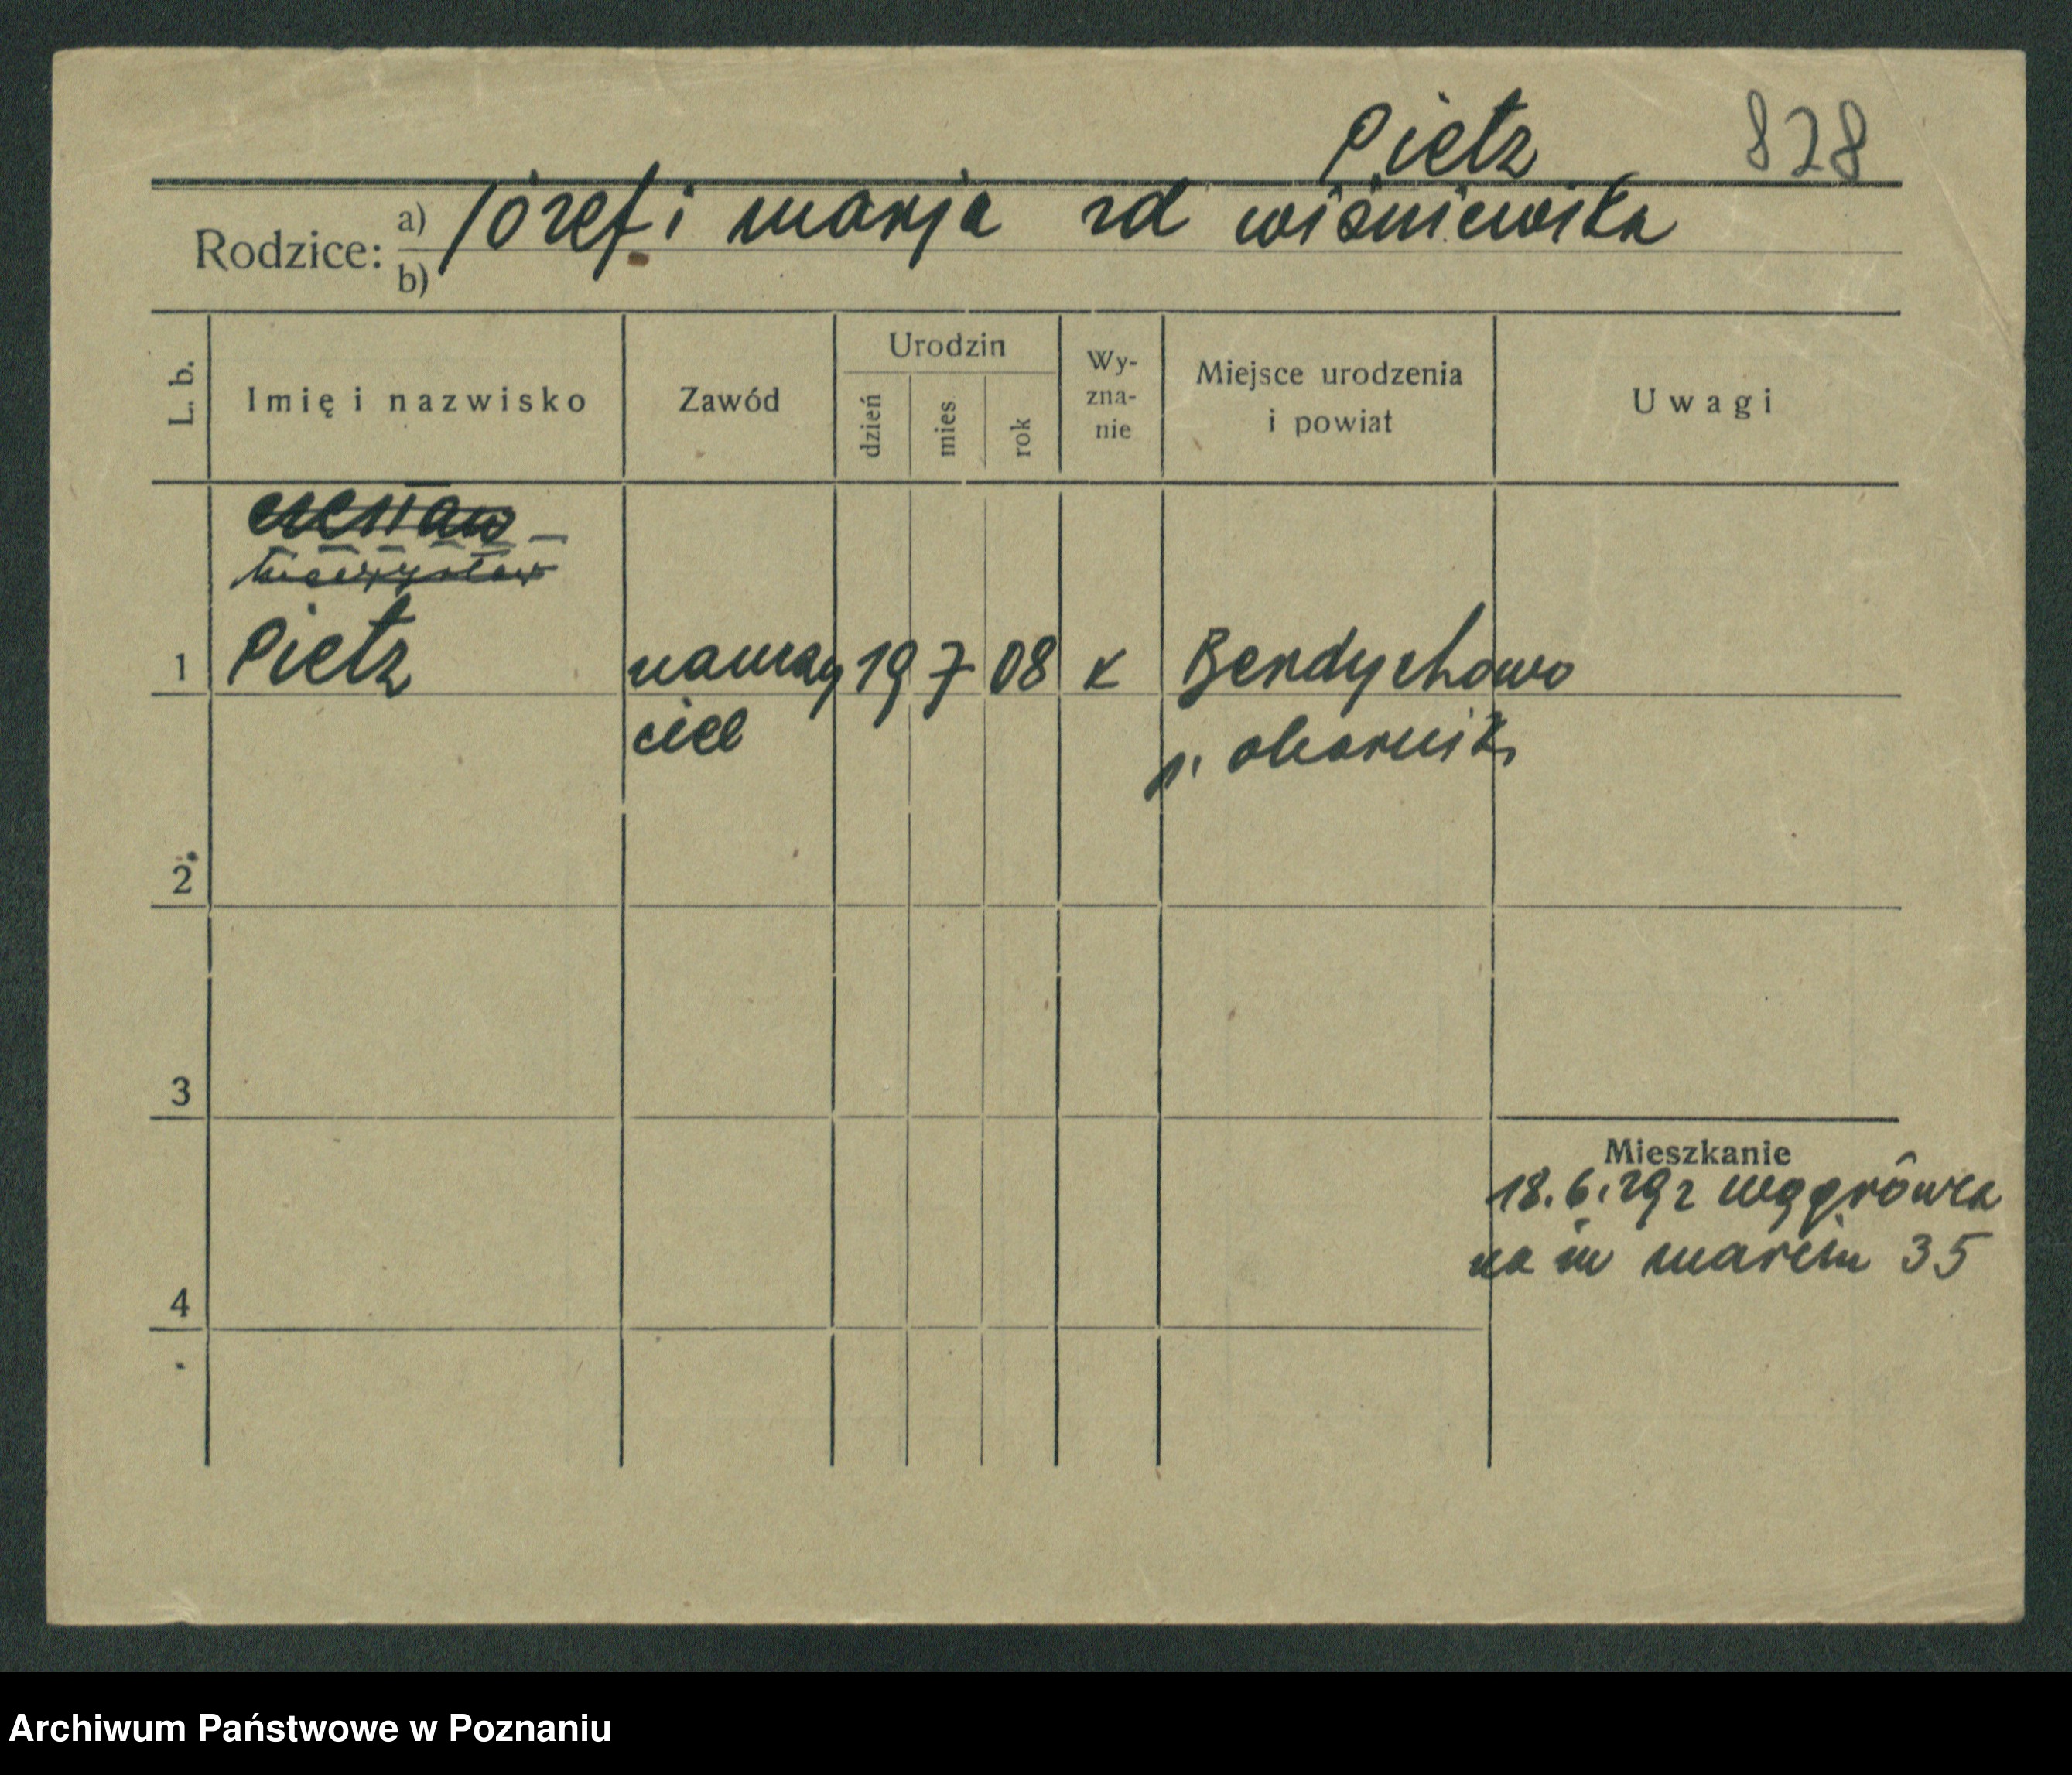 Pietz 828
Rodzice: a) Józef i marja zd wiśniewska
b)
L. b. Imię i nazwisko Zawód Urodzin dzień mies. rok Wy-zna-nie Miejsce urodzenia i powiat Uwagi
czesław
mieczysław
1 Pietz nauczy 19 7 08 k Berdychowo
ciel p. oborniki
2
3
Mieszkanie
18.6.29 z wągrówca
na św marcin 35
4
Archiwum Państwowe w Poznaniu